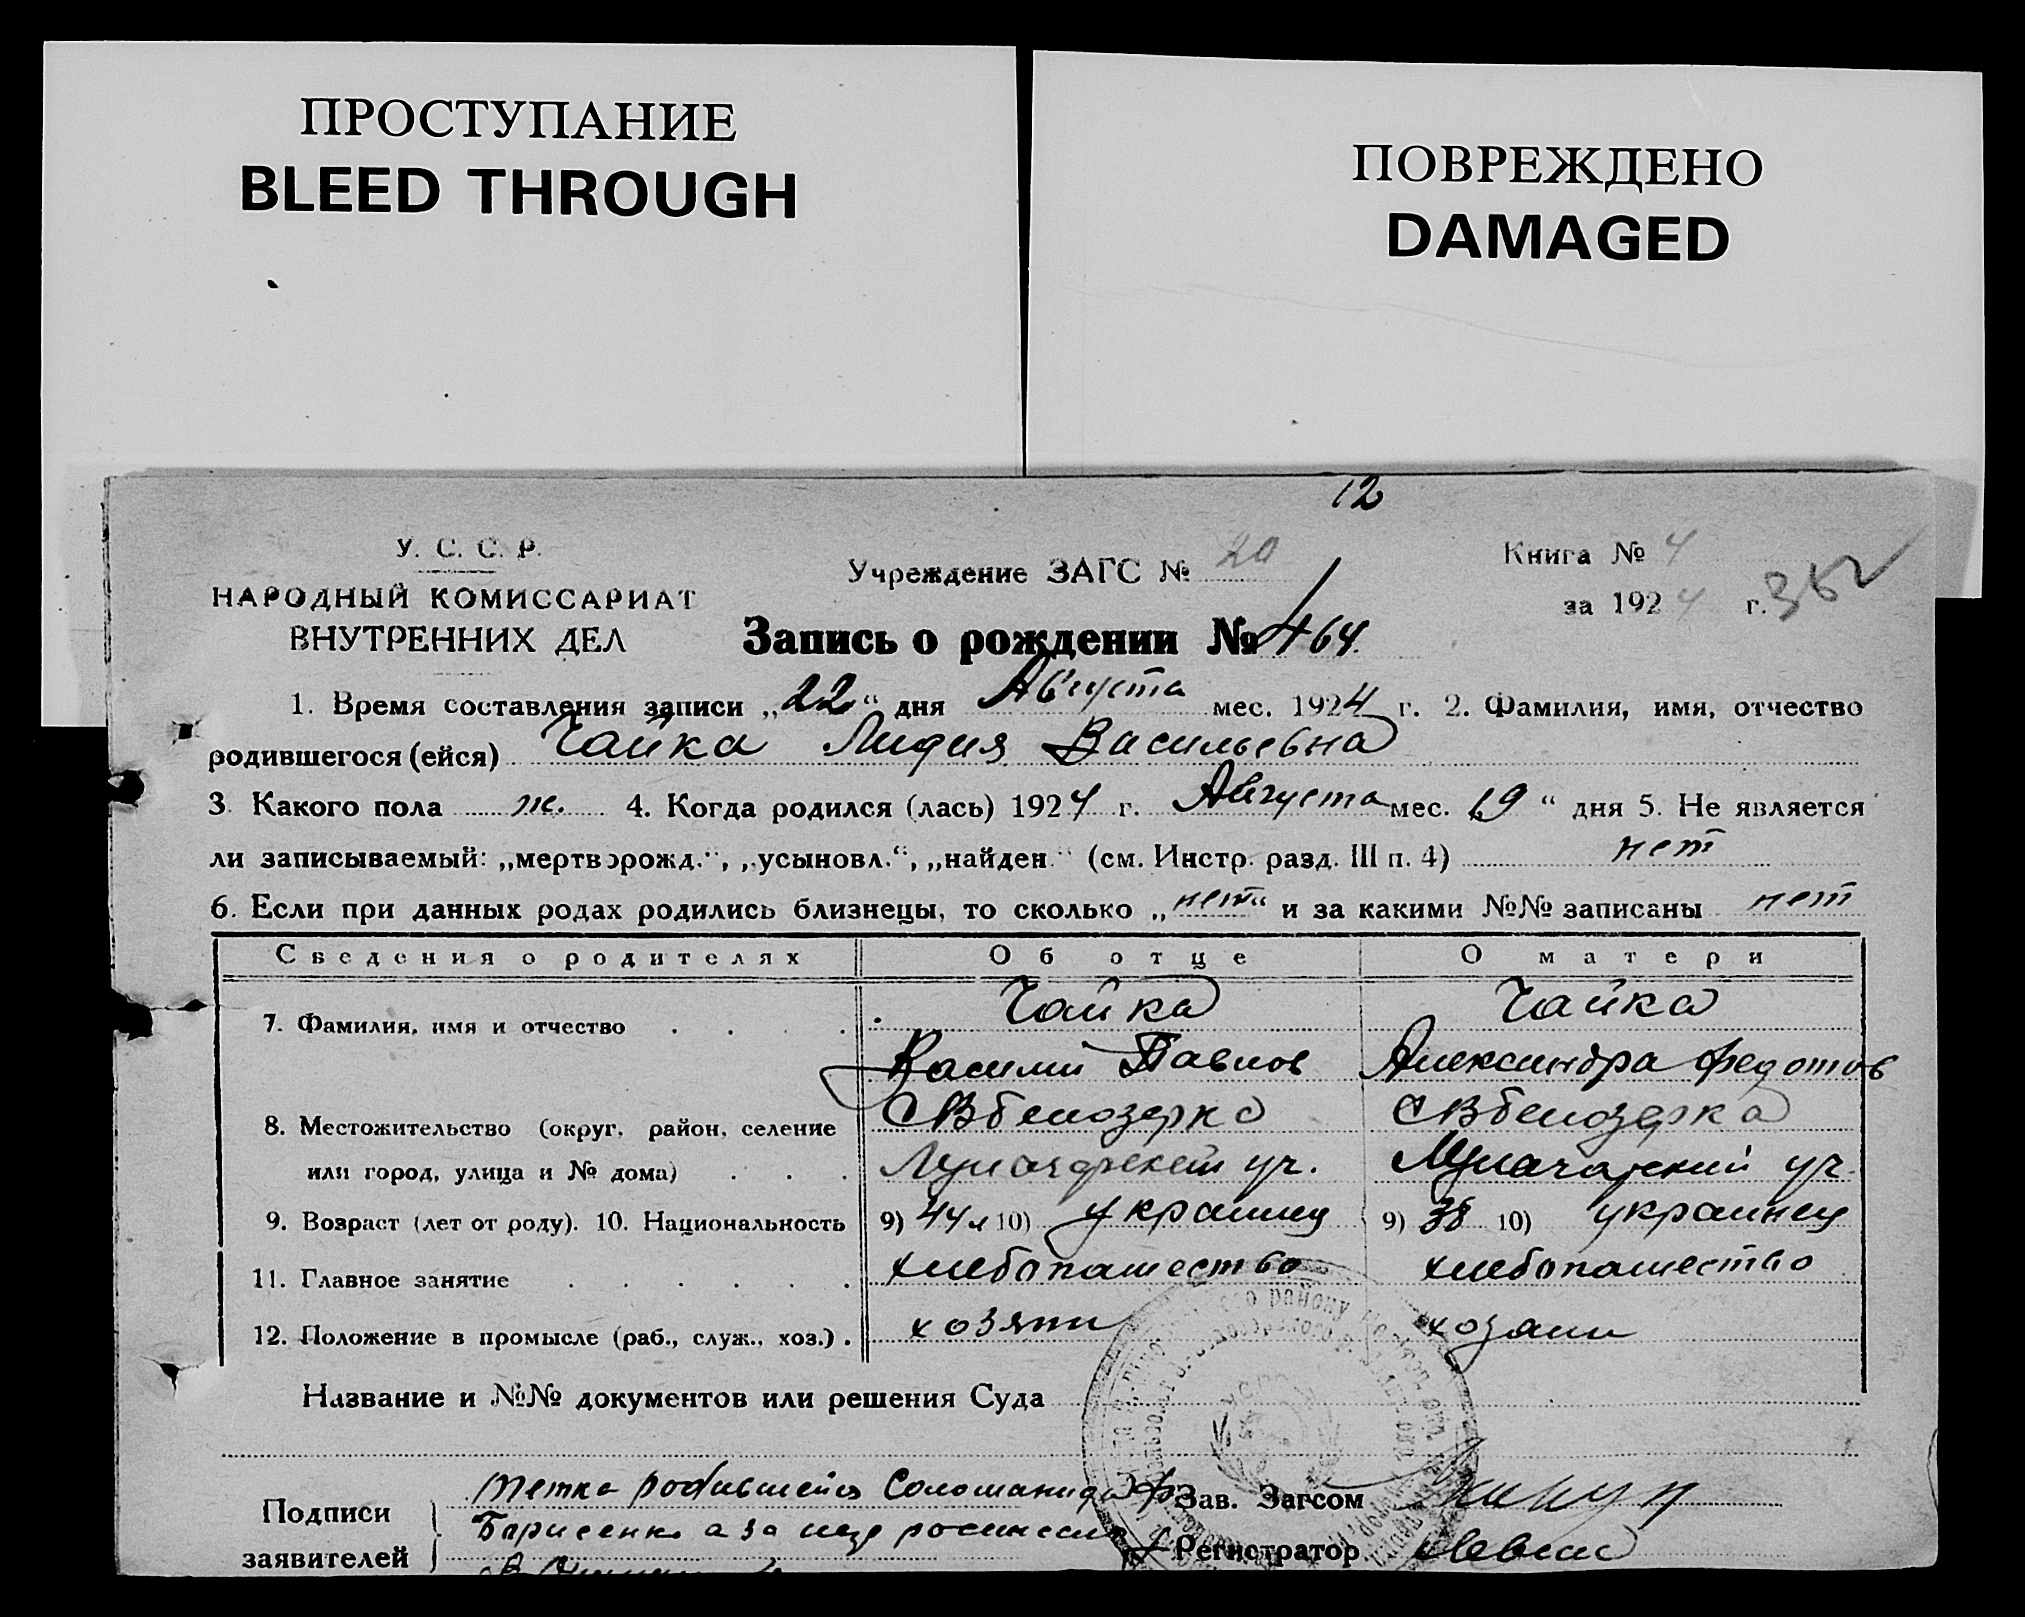 ПРОСТУПАНИЕ
BLEED THROUGH
ПОВРЕЖДЕНО
DAMAGED
12
У. С. С. Р.
НАРОДНЫЙ КОМИССАРИАТ
ВНУТРЕННИХ ДЕЛ
Учреждение ЗАГС № 20
Книга № 4
за 1924 г. 362
Запись о рождении № 464.
1. Время составления записи „22“ дня Августа мес. 1924 г. 2. Фамилия, имя, отчество
родившегося (ейся) Чайка Лидия Васильевна
3. Какого пола ж. 4. Когда родился (лась) 1924 г. Августа мес. 19 “ дня 5. Не является
ли записываемый: „мертворожд.“, „усыновл.“, „найден.“ (см. Инстр. разд. III п. 4) нет
6. Если при данных родах родились близнецы, то сколько „нет“ и за какими №№ записаны нет
Сведения о родителях Об отце О матери
7. Фамилия, имя и отчество . . . . Чайка Чайка
Василий Павлов Александра Федотов
8. Местожительство (округ, район, селение СВбелозерка СВбелозерка
или город, улица и № дома) . . . уч. уч.
9. Возраст (лет от роду). 10. Национальность 9) 44 л 10) украинец 9) 38 10) украинец
11. Главное занятие . . . . . . хлебопашество хлебопашество
12. Положение в промысле (раб., служ., хоз.) . хозяин хозяин
Название и №№ документов или решения Суда
Подписи
заявителей
тетка родившейся Соломанида
Борисенко а за неё
Зав. Загсом
Регистратор